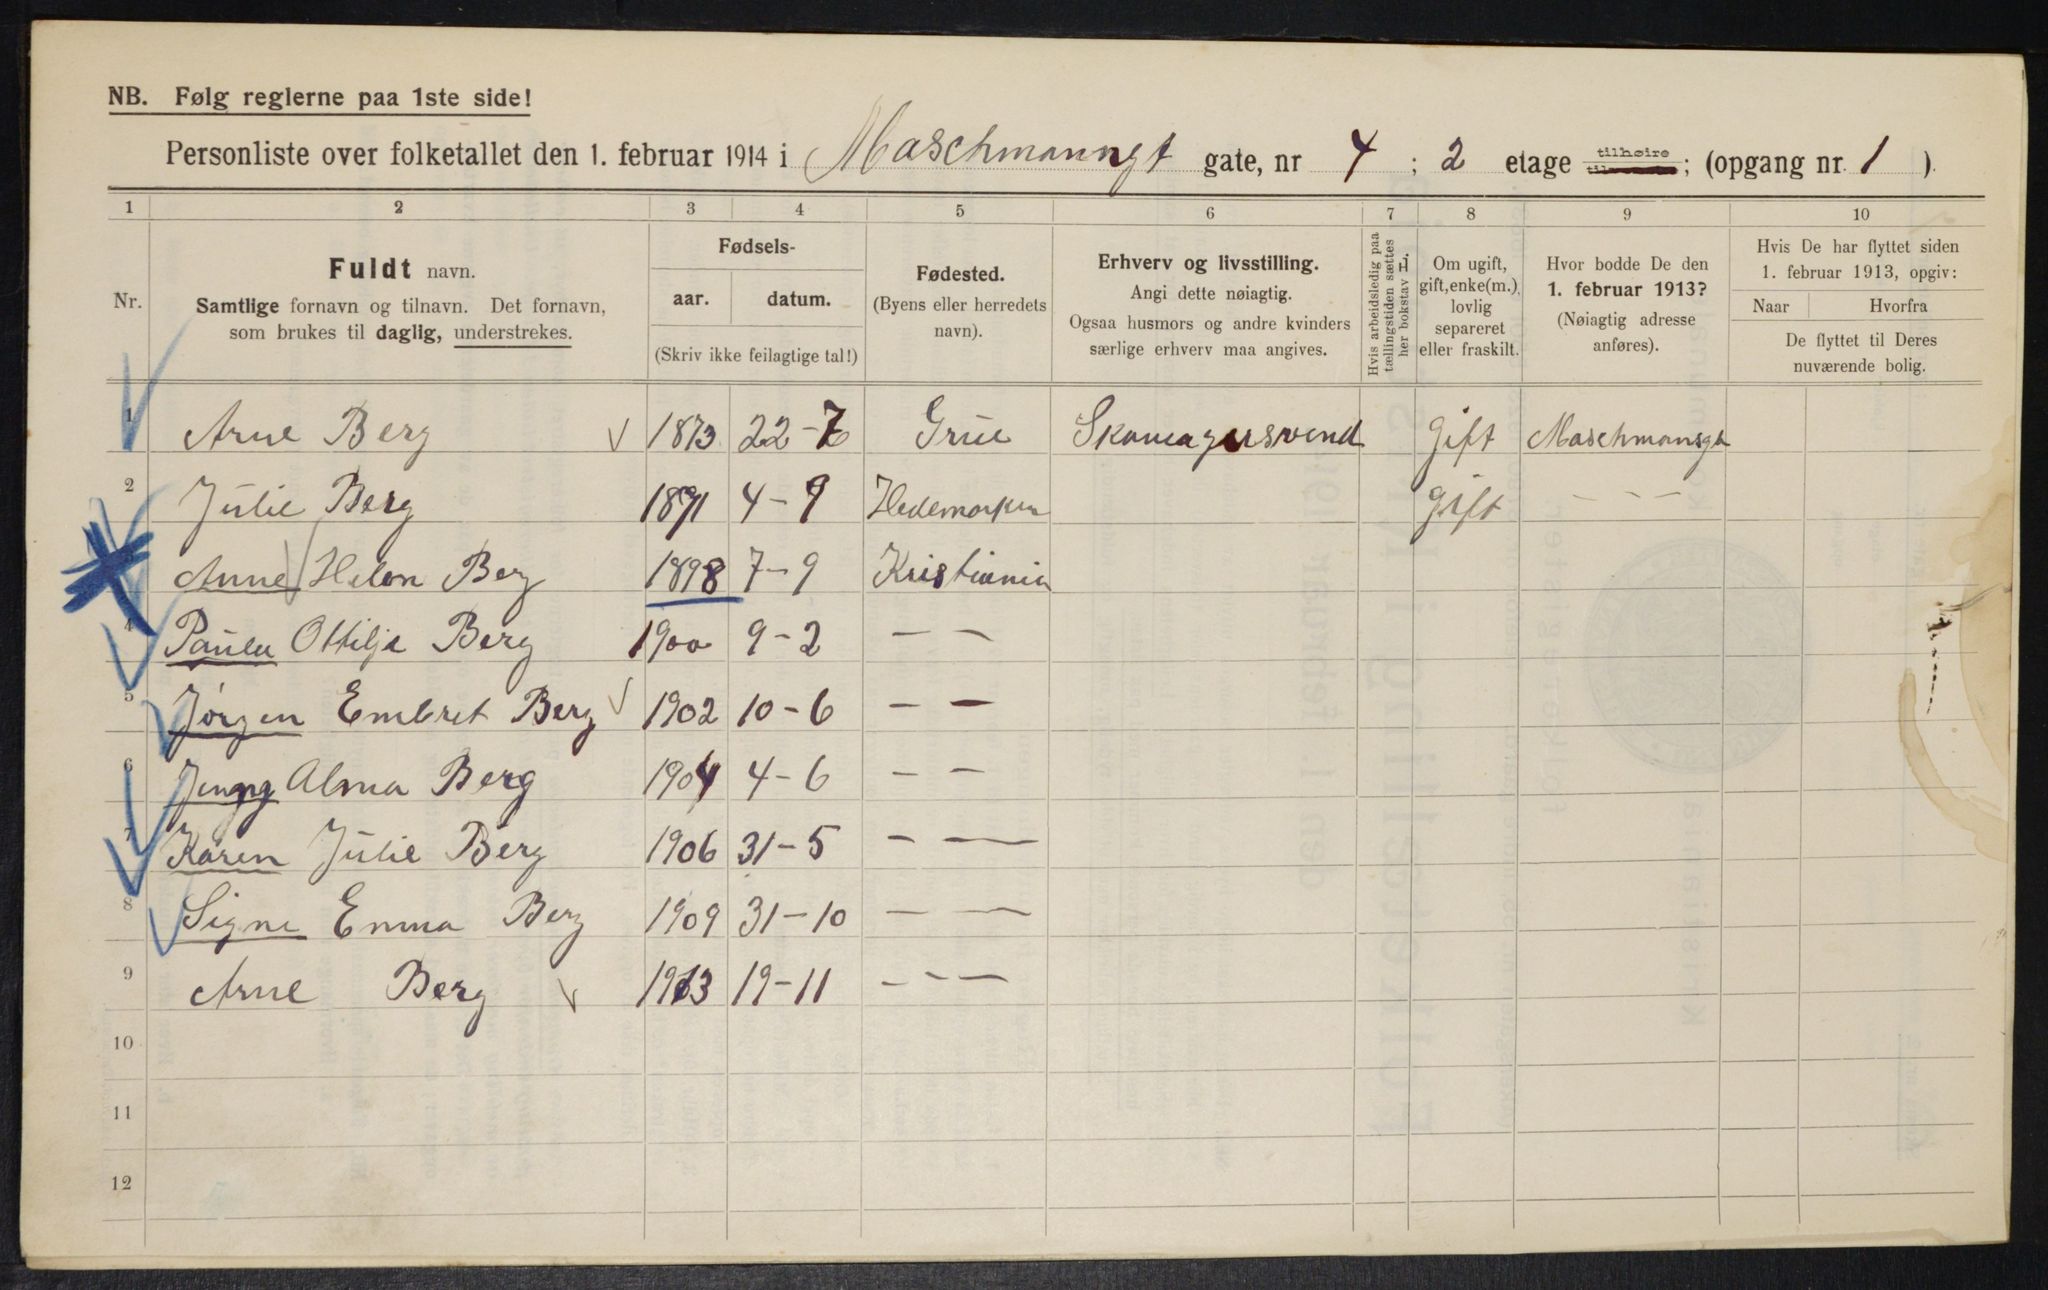 NB. Følg reglerne paa 1ste side!
Personliste over folketallet den 1. februar 1914 i Maschmanngt gate, nr 4 ; 2 etage tilhøire ; (opgang nr. 1 ).
1 2 3 4 5 6 7 8 9 10
Nr.
Fuldt navn.
Samtlige fornavn og tilnavn. Det fornavn,
som brukes til daglig, understrekes.
Fødsels-
aar. datum.
(Skriv ikke feilagtige tal!)
Fødested.
(Byens eller herredets
navn).
Erhverv og livsstilling.
Angi dette nøiagtig.
Ogsaa husmors og andre kvinders
særlige erhverv maa angives.
Hvis arbeidsledig paa
tællingstiden sættes
her bokstav L.
Om ugift,
gift, enke(m.),
lovlig
separeret
eller fraskilt.
Hvor bodde De den
1. februar 1913?
(Nøiagtig adresse
anføres).
Hvis De har flyttet siden
1. februar 1913, opgiv:
Naar Hvorfra
De flyttet til Deres
nuværende bolig.
1 Arne Berg 1873 22-7 Grue Skomagersvend Gift Maschmansgt
2 Julie Berg 1871 4-9 Hedemarken Gift - - -
3 Anne Helen Berg 1898 7-9 Kristiania
4 Paula Ottilje Berg 1900 9-2 — —
5 Jørgen Embret Berg 1902 10-6 — —
6 Jenny Alma Berg 1904 4-6 — —
7 Karen Julie Berg 1906 31-5 — —
8 Signe Emma Berg 1909 31-10 — —
9 Arne Berg 1913 19-11 - - —
10
11
12